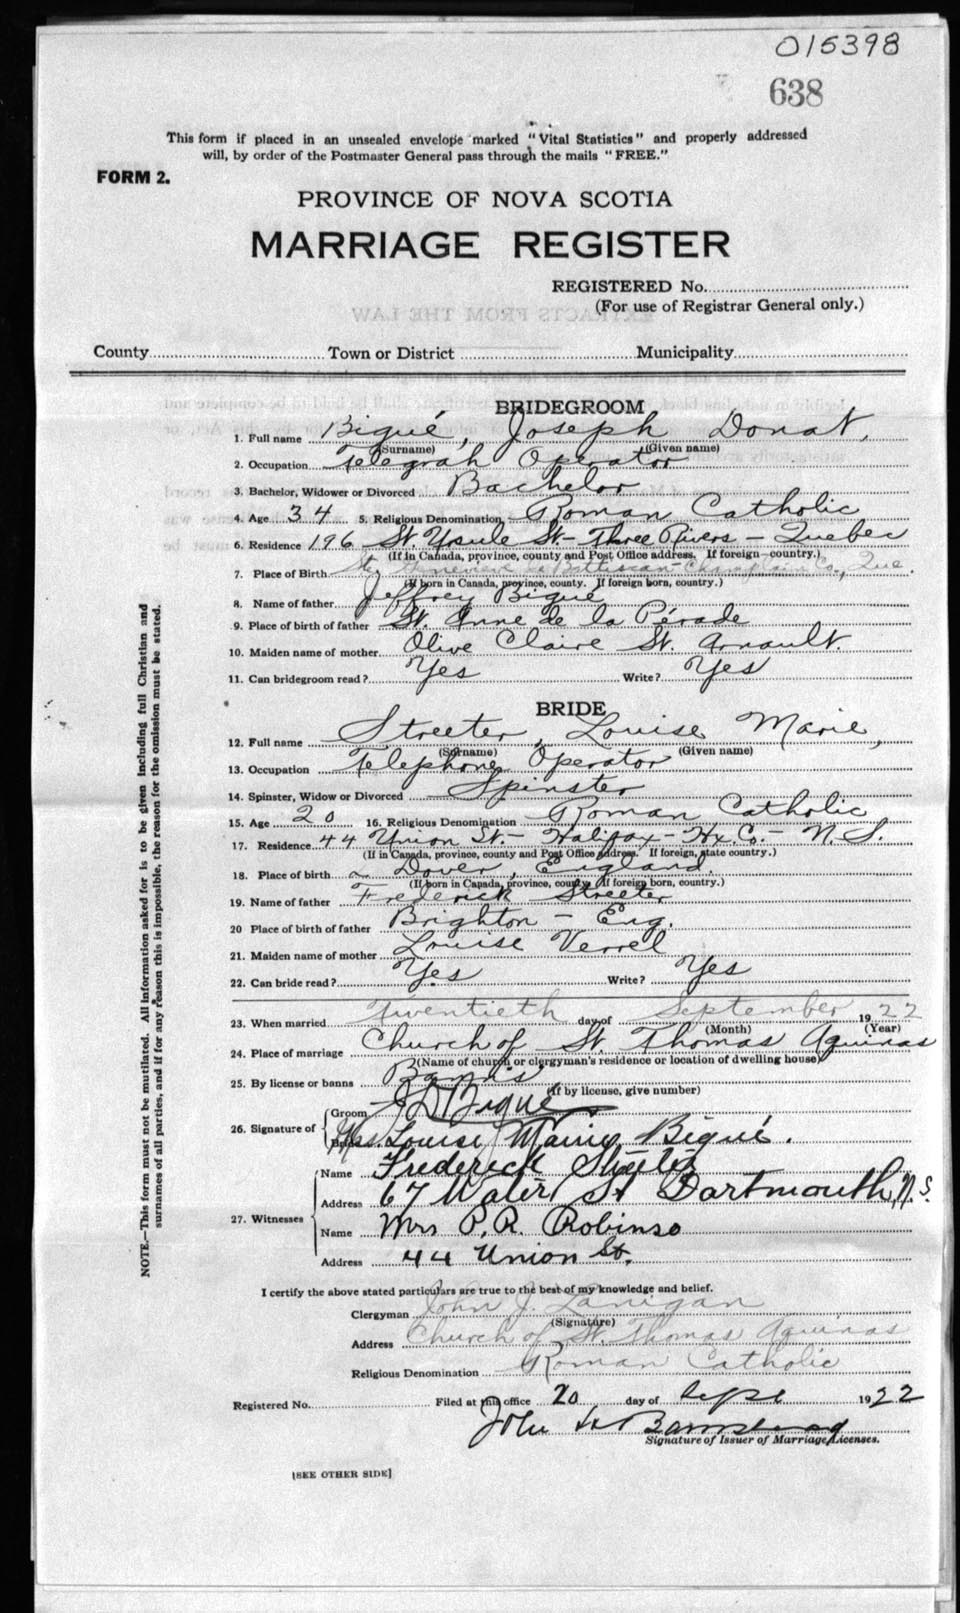 015398
638
This form if placed in an unsealed envelope marked "Vital Statistics" and properly addressed
will, by order of the Postmaster General pass through the mails "FREE."
FORM 2.
PROVINCE OF NOVA SCOTIA
MARRIAGE REGISTER
REGISTERED No.
(For use of Registrar General only.)
EXTRACTS FROM THE LAW
County Town or District Municipality
BRIDEGROOM
1. Full name Bigué, Joseph Donat,
(Surname) (Given name)
2. Occupation Telegrah Operator
3. Bachelor, Widower or Divorced Bachelor
4. Age 34 5. Religious Denomination Roman Catholic
6. Residence 196 St. Ursule St. - Three Rivers - Quebec
(If in Canada, province, county and Post Office address. If foreign country.)
7. Place of Birth Genevieve de Batiscan - Champlain Co., Que.
(If born in Canada, province, county. If foreign born, country.)
8. Name of father Jeffrey Bigué
9. Place of birth of father St. Anne de la Pérade
10. Maiden name of mother Olive Claire St. Arnault.
11. Can bridegroom read? Yes Write? Yes
BRIDE
12. Full name Streeter, Louise Marie,
(Surname) (Given name)
13. Occupation Telephone Operator
14. Spinster, Widow or Divorced Spinster
15. Age 20 16. Religious Denomination Roman Catholic
17. Residence 44 Union St. - Halifax - Hx. Co. - N.S.
(If in Canada, province, county and Post Office address. If foreign, state country.)
18. Place of birth Dover, England.
(If born in Canada, province, county. If foreign born, country.)
19. Name of father Frederick Streeter
20 Place of birth of father Brighton - Eng.
21. Maiden name of mother Louise Verrel
22. Can bride read? Yes Write? Yes
23. When married Twentieth day of September 1922
(Month) (Year)
24. Place of marriage Church of St. Thomas Aquinas
(Name of church or clergyman's residence or location of dwelling house)
25. By license or banns Banns
(If by license, give number)
26. Signature of Groom J D Bigué
Bride Mrs. Louise Marie Bigué.
27. Witnesses Name Frederick Streeter
Address 67 Water St Dartmouth, N.S.
Name Mrs P. R. Robinso
Address 44 Union St.
I certify the above stated particulars are true to the best of my knowledge and belief.
Clergyman John J. Lanigan
(Signature)
Address Church of St. Thomas Aquinas
Religious Denomination Roman Catholic
Registered No. Filed at this office 20 day of Sept 1922
John H
Signature of Issuer of Marriage Licenses.
[SEE OTHER SIDE]
NOTE.—This form must not be mutilated. All information asked for is to be given including full Christian and
surnames of all parties, and if for any reason this is impossible, the reason for the omission must be stated.